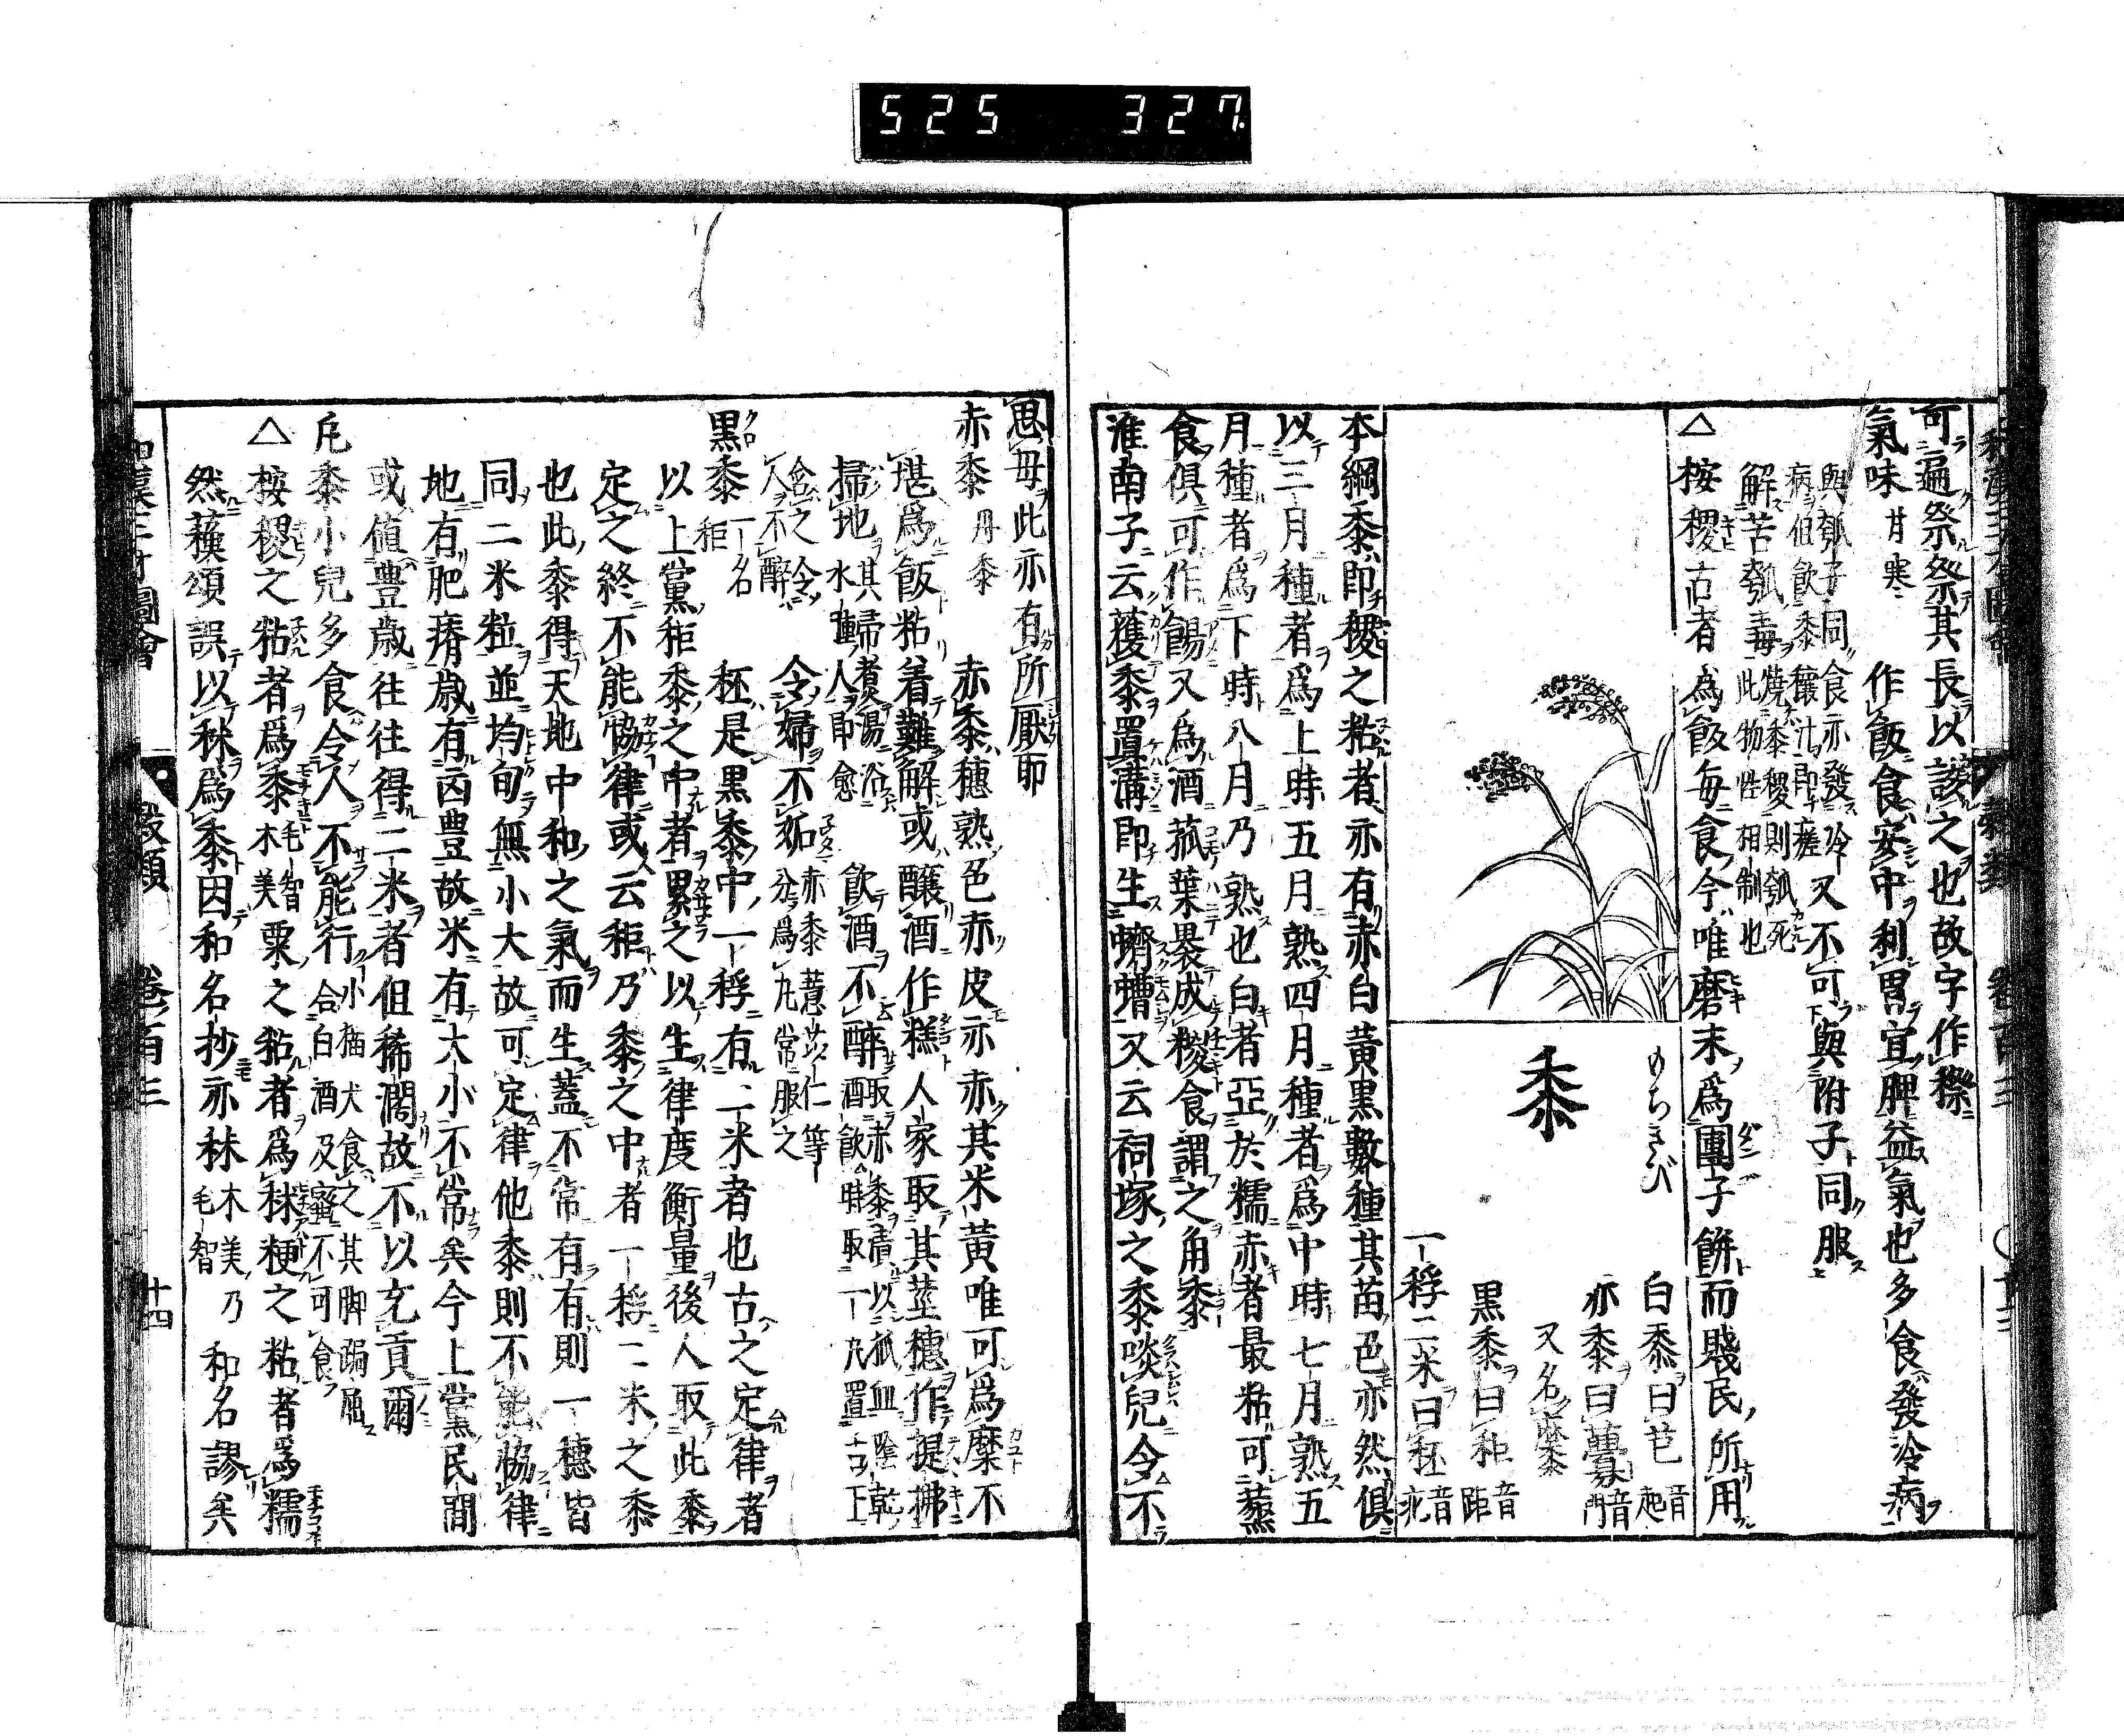 525 327
可遍祭祭其長以該之也故字作穄
氣味 甘寒 作飯食安中利胃宜脾益氣也多食發冷病
與瓠子同食亦發冷
病但飲黍穰汁即瘥
又不可與附子同服
解苦瓠毒
燒黍稷則瓠死
此物性相制也
△按稷古者爲飯毎食今唯磨末爲團子餅而賤民所用
もちきび
黍
白黍曰芑 音起
赤黍曰虋 音門
又名 糜黍
黒黍曰秬 音距
一稃二米曰秠 音疕
本綱黍即稷之粘者亦有赤白黄黒數種其苗色亦然俱
以三月種者爲上時五月熟四月種者爲中時七月熟五
月種者爲下時八月乃熟也白者亞於糯赤者最粘可蒸
食俱可作餳又爲酒菰葉裹成糉食謂之角黍
淮南子云穫黍置溝即生蠐螬又云祠塚之黍啖兒令不
思毋此亦有所厭耶
赤黍 丹黍 赤黍穗熟色赤皮亦赤其米黄唯可爲糜不
堪爲飯粘着難解或釀酒作糕人家取其莖穗作提拂
掃地
其掃煑湯浴
水腫人即愈
飲酒不醉
取赤黍漬以狐血陰乾
酒飲時取一丸置舌下
含之令
人不醉
令婦不妬
赤黍薏苡仁等
分爲丸常服之
黒黍 秬一名 秠是黒黍中一稃有二米者也古之定律者
以上黨秬黍之中者累之以生律度衡量後人取此黍
定之終不能協律或云秬乃黍之中者一稃二米之黍
也此黍得天地中和之氣而生蓋不常有有則一穗皆
同二米粒並均匀無小大故可定律他黍則不能協律
地有肥瘠歳有凶豊故米有大小不常矣今上黨民間
或値豊歳往往得二米者但稀濶故不以充貢爾
凡黍小兒多食令人不能行
小猫犬食之其脚跼屈
合白酒及蜜不可食
△按稷之粘者爲黍
毛智
木美
粟之粘者爲秫粳之粘者爲糯
然蘓頌誤以秫爲黍因和名抄亦秫
木美乃
毛智
和名謬矣
和漢三才圖會 穀類 卷百三 十四